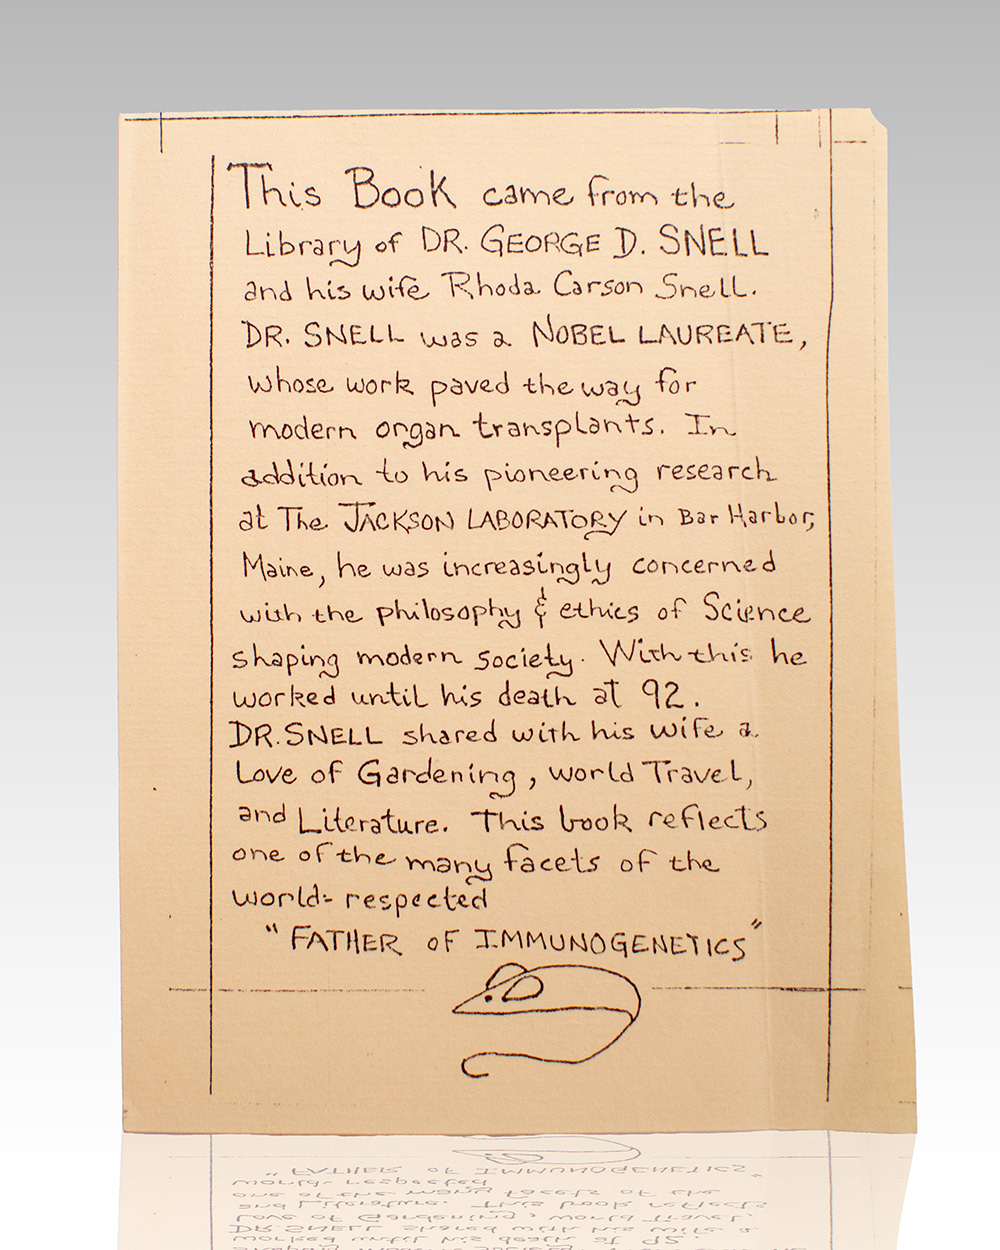 This Book came from the
Library of DR. GEORGE D. SNELL
and his wife Rhoda Carson Snell.
DR. SNELL was a NOBEL LAUREATE,
whose work paved the way for
modern organ transplants. In
addition to his pioneering research
at The JACKSON LABORATORY in Bar Harbor,
Maine, he was increasingly concerned
with the philosophy & ethics of Science
shaping modern society. With this he
worked until his death at 92.
DR. SNELL shared with his wife a
Love of Gardening, world Travel,
and Literature. This book reflects
one of the many facets of the
world-respected
"FATHER OF IMMUNOGENETICS"